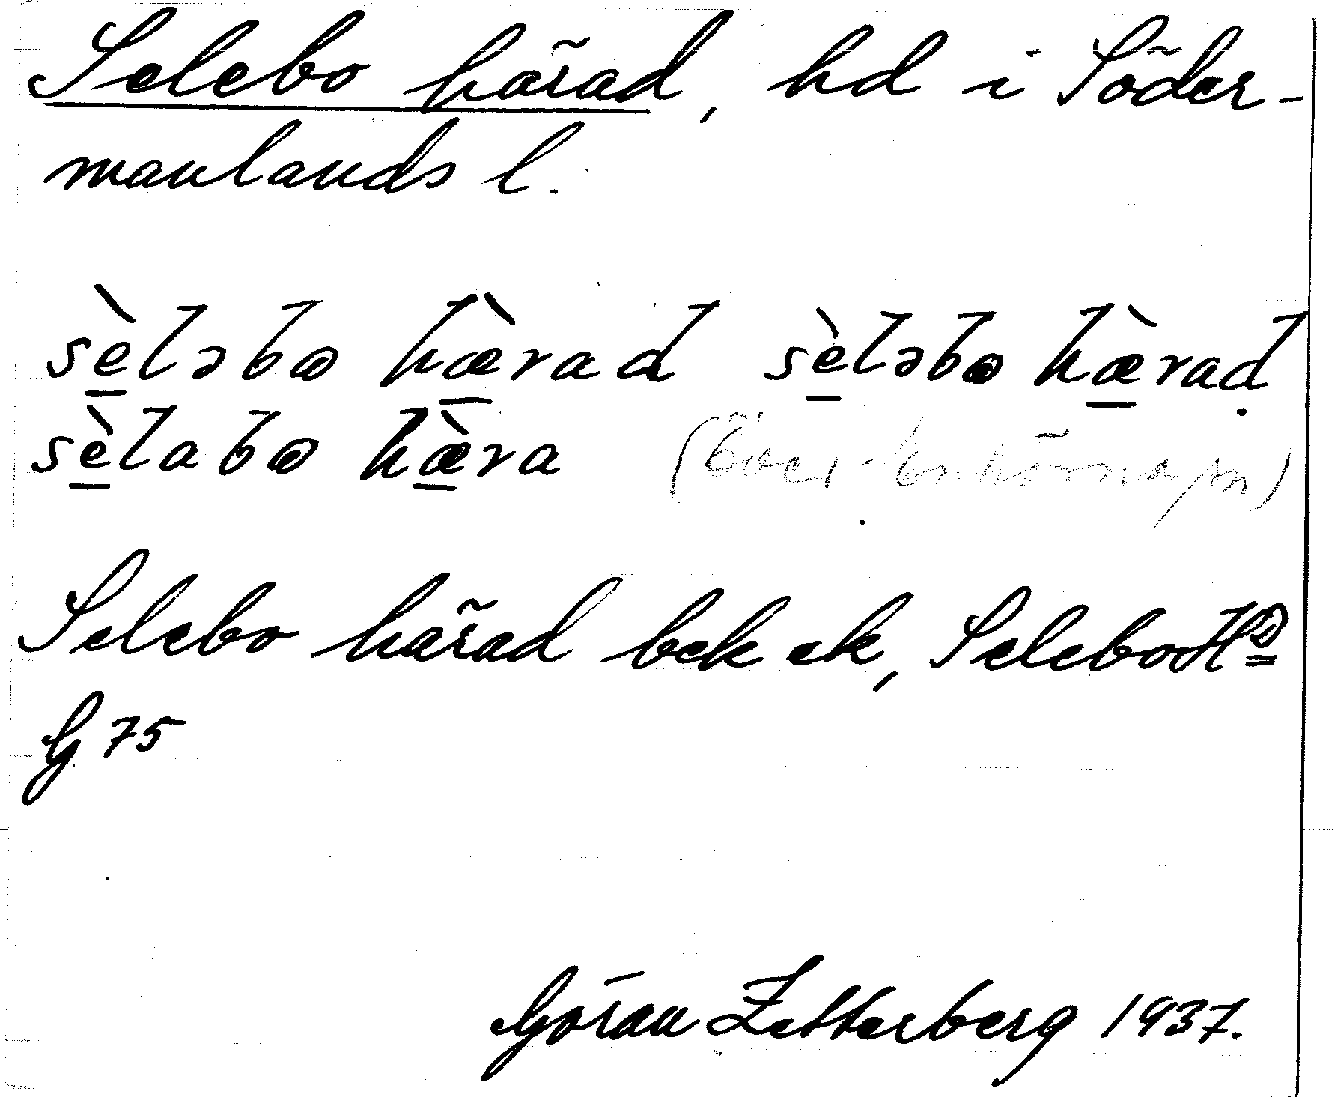 Selebo härad, hd i Söder-
manlands l.
sèləbω hæ̀rad sèləbω hæ̀rad̩
sèlabω hæ̀ra (Över-Enhörna sn)
Selebo härad bek ek, Selebo H<u>d</u>
G 75
Göran Zetterberg 1937.